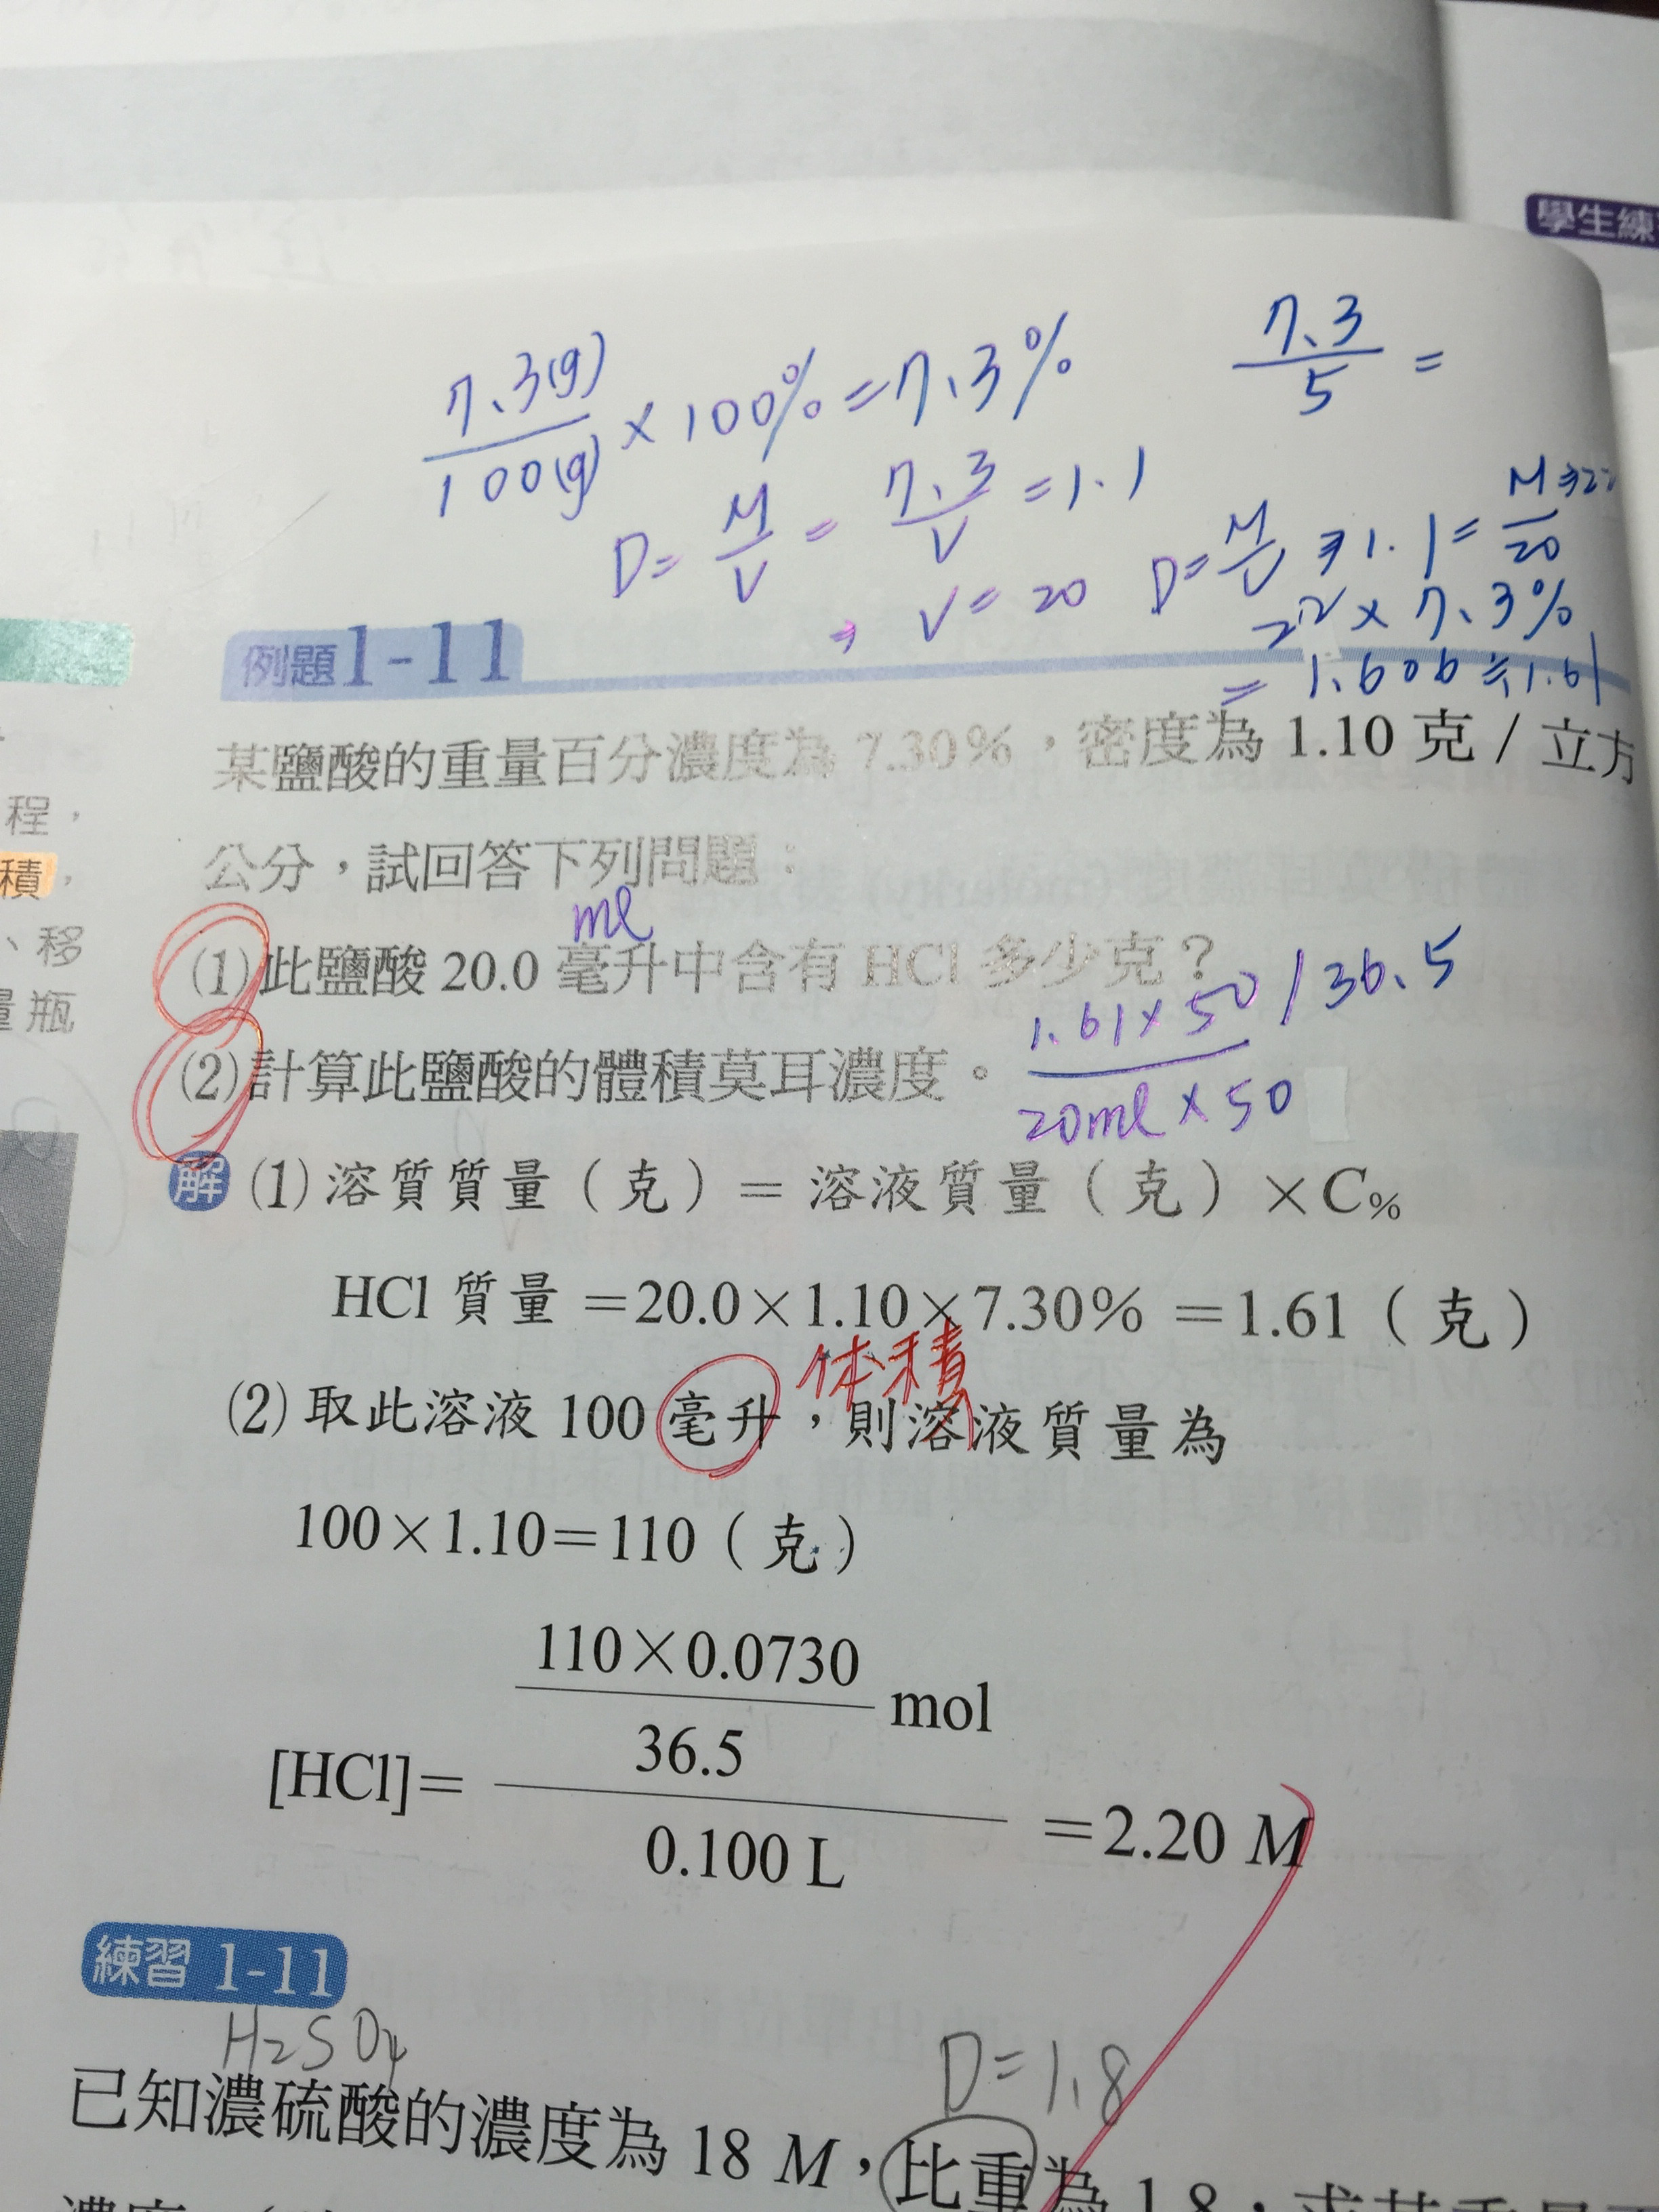 學生練
7.3(g)/100(g) × 100% = 7.3%
7.3/5 =
D = M/V = 7.3/V = 1.1
⇒ V = 20
D = M/V ⇒ 1.1 = M/20 ⇒ 22
22 × 7.3%
= 1.606 ≒ 1.61
例題1-11
某鹽酸的重量百分濃度為 7.30%，密度為 1.10 克 / 立方
公分，試回答下列問題：
ml
(1)此鹽酸 20.0 毫升中含有 HCl 多少克？
(2)計算此鹽酸的體積莫耳濃度。
1.61×50 / 36.5
20ml × 50
程，
積，
、移
量瓶
解 (1)溶質質量（克）＝溶液質量（克）×C%
HCl 質量 =20.0×1.10×7.30% =1.61（克）
体積
(2)取此溶液 100 毫升，則溶液質量為
100×1.10=110（克）
110×0.0730
mol
36.5
[HCl]=
=2.20 M
0.100 L
練習 1-11
H2SO4
D=1.8
已知濃硫酸的濃度為 18 M，比重為 1.8，求其重量百